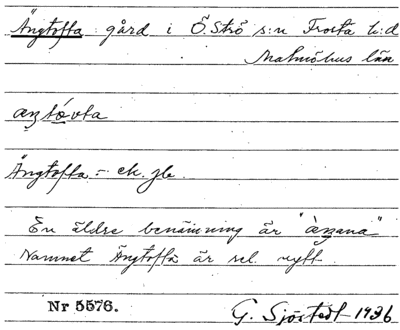 Ängtofta gård i Ö. Strö s:n Frosta h:d
Malmöhus län
aŋtòvta
Ängtofta = ek. jb.
En äldre benämning är "àŋana"
Namnet Ängtofta är rel. nytt.
Nr 5576. G. Sjöstedt 1936